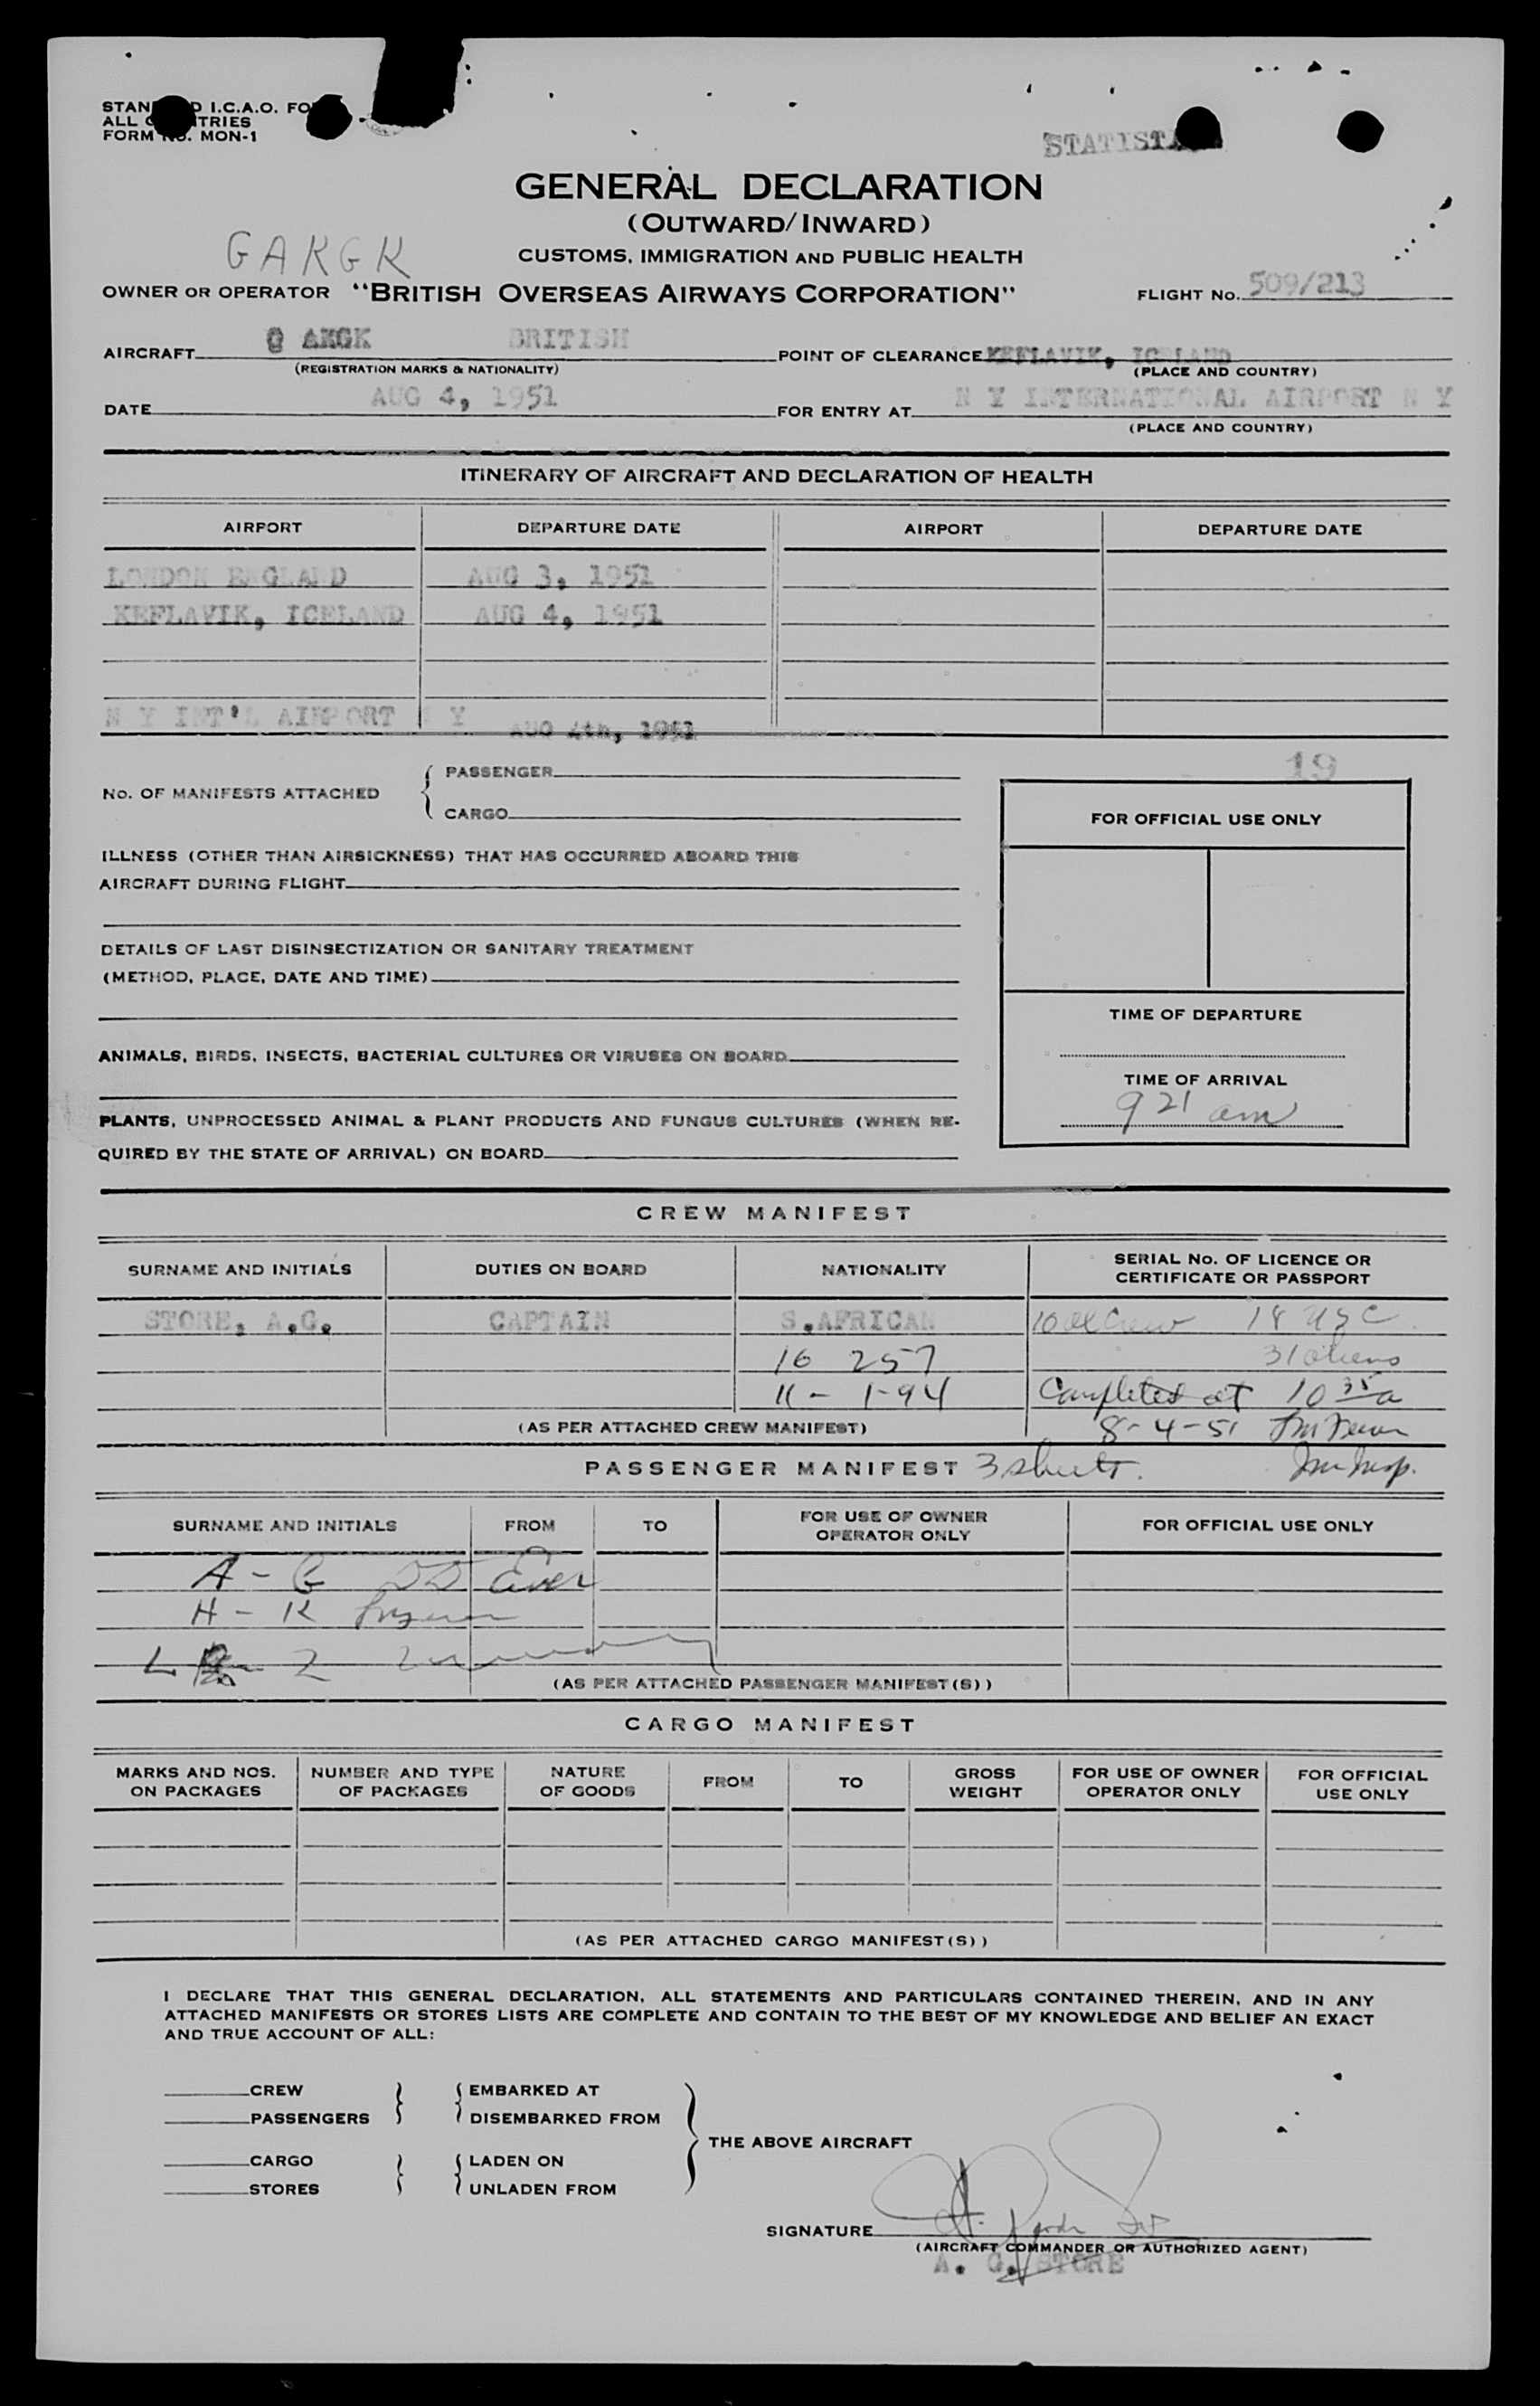 STAN D I.C.A.O. FO
ALL C TRIES
FORM NO. MON-1
STATIST
GENERAL DECLARATION
(OUTWARD/INWARD)
GAKGK
CUSTOMS, IMMIGRATION AND PUBLIC HEALTH
OWNER OR OPERATOR "BRITISH OVERSEAS AIRWAYS CORPORATION" FLIGHT No. 509/213
AIRCRAFT G AKGK BRITISH POINT OF CLEARANCE KEFLAVIK, ICELAND
(REGISTRATION MARKS & NATIONALITY) (PLACE AND COUNTRY)
DATE AUG 4, 1951 FOR ENTRY AT N Y INTERNATIONAL AIRPORT N Y
(PLACE AND COUNTRY)
ITINERARY OF AIRCRAFT AND DECLARATION OF HEALTH
AIRPORT DEPARTURE DATE AIRPORT DEPARTURE DATE
LONDON ENGLAND AUG 3, 1951
KEFLAVIK, ICELAND AUG 4, 1951
N Y INT'L AIRPORT N Y AUG 4th, 1951
19
No. OF MANIFESTS ATTACHED { PASSENGER
CARGO
FOR OFFICIAL USE ONLY
ILLNESS (OTHER THAN AIRSICKNESS) THAT HAS OCCURRED ABOARD THIS
AIRCRAFT DURING FLIGHT
DETAILS OF LAST DISINSECTIZATION OR SANITARY TREATMENT
(METHOD, PLACE, DATE AND TIME)
TIME OF DEPARTURE
ANIMALS, BIRDS, INSECTS, BACTERIAL CULTURES OR VIRUSES ON BOARD
TIME OF ARRIVAL
9 21 am
PLANTS, UNPROCESSED ANIMAL & PLANT PRODUCTS AND FUNGUS CULTURES (WHEN RE-
QUIRED BY THE STATE OF ARRIVAL) ON BOARD
CREW MANIFEST
SURNAME AND INITIALS DUTIES ON BOARD NATIONALITY SERIAL No. OF LICENCE OR
CERTIFICATE OR PASSPORT
STORE, A.G. CAPTAIN S.AFRICAN 10 al Crew 18 USC
16 257 31 aliens
11 - 1-94 Completed at 10 35 a
(AS PER ATTACHED CREW MANIFEST) 8-4-51
PASSENGER MANIFEST 3 sheets. Imm Insp.
SURNAME AND INITIALS FROM TO FOR USE OF OWNER
OPERATOR ONLY FOR OFFICIAL USE ONLY
A - G
H - K
L Z
(AS PER ATTACHED PASSENGER MANIFEST(S))
CARGO MANIFEST
MARKS AND NOS.
ON PACKAGES NUMBER AND TYPE
OF PACKAGES NATURE
OF GOODS FROM TO GROSS
WEIGHT FOR USE OF OWNER
OPERATOR ONLY FOR OFFICIAL
USE ONLY
(AS PER ATTACHED CARGO MANIFEST(S))
I DECLARE THAT THIS GENERAL DECLARATION, ALL STATEMENTS AND PARTICULARS CONTAINED THEREIN, AND IN ANY
ATTACHED MANIFESTS OR STORES LISTS ARE COMPLETE AND CONTAIN TO THE BEST OF MY KNOWLEDGE AND BELIEF AN EXACT
AND TRUE ACCOUNT OF ALL:
CREW EMBARKED AT
PASSENGERS DISEMBARKED FROM
THE ABOVE AIRCRAFT
CARGO LADEN ON
STORES UNLADEN FROM
SIGNATURE
(AIRCRAFT COMMANDER OR AUTHORIZED AGENT)
A. G. STORE